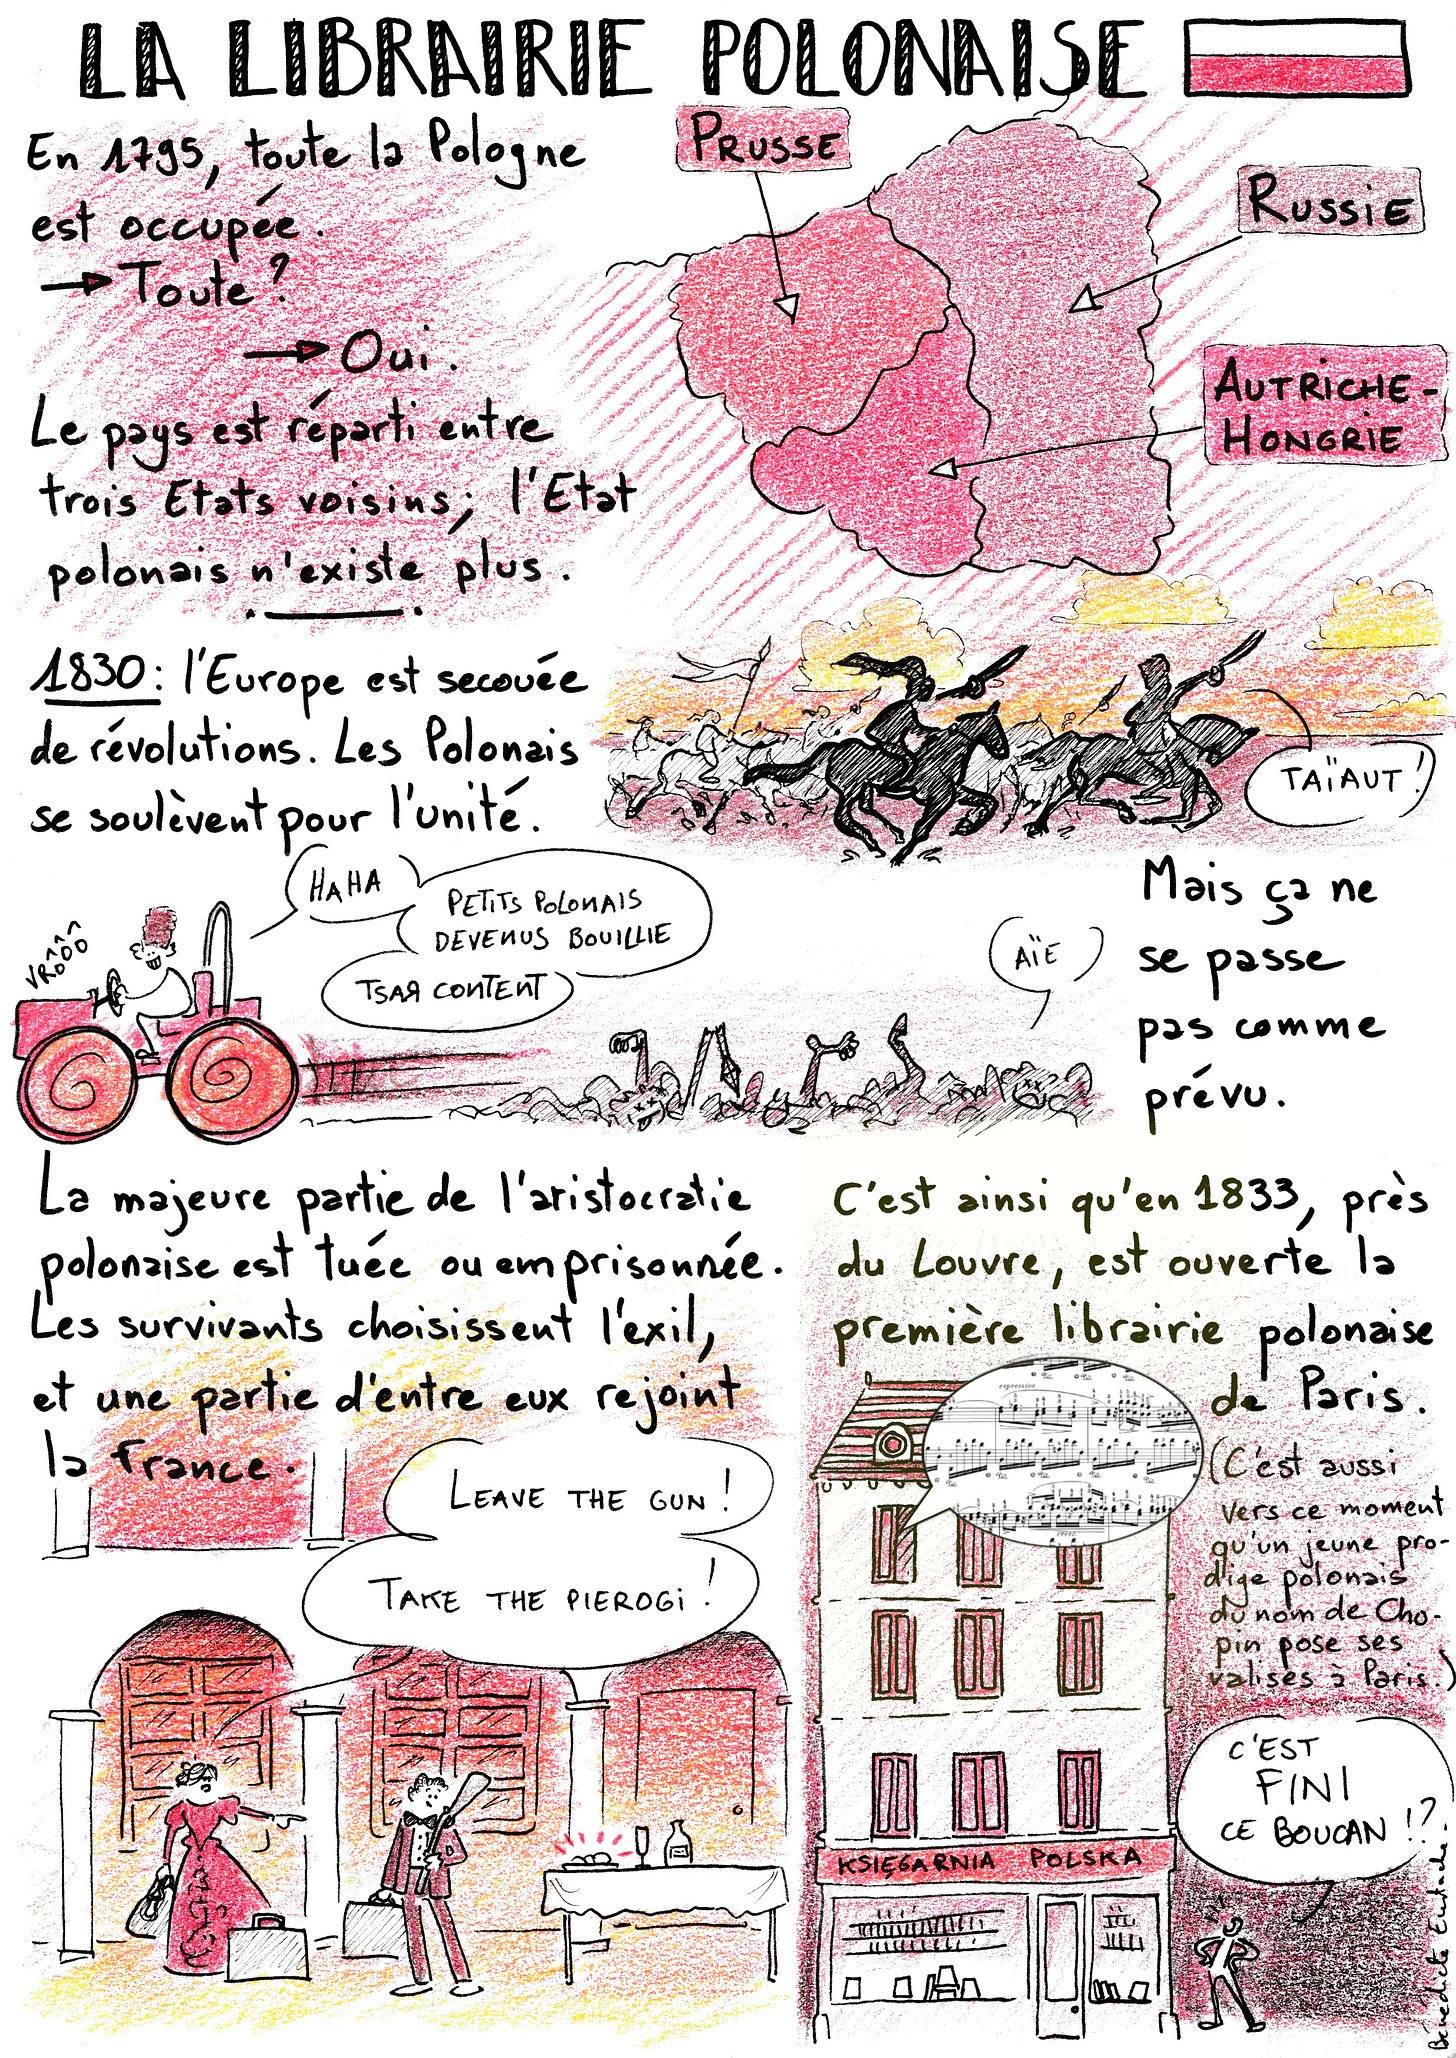 LA LIBRAIRIE POLONAISE
En 1795, toute la Pologne
est occupée.
→ Toute ?
→ Oui.
Le pays est réparti entre
trois Etats voisins ; l'Etat
polonais n'existe plus.
PRUSSE
RUSSIE
AUTRICHE-
HONGRIE
1830 : l'Europe est secouée
de révolutions. Les Polonais
se soulèvent pour l'unité.
TAÏAUT !
VRÔÔÔ
HAHA
PETITS POLONAIS
DEVENUS BOUILLIE
TSAR CONTENT
AÏE
Mais ça ne
se passe
pas comme
prévu.
La majeure partie de l'aristocratie
polonaise est tuée ou emprisonnée.
Les survivants choisissent l'exil,
et une partie d'entre eux rejoint
la France.
LEAVE THE GUN !
TAKE THE PIEROGI !
C'est ainsi qu'en 1833, près
du Louvre, est ouverte la
première librairie polonaise
de Paris.
expression
cresc.
(C'est aussi
vers ce moment
qu'un jeune pro-
dige polonais
du nom de Cho-
pin pose ses
valises à Paris.)
C'EST
FINI
CE BOUCAN !?
KSIĘGARNIA POLSKA
Bénédicte Eustache.